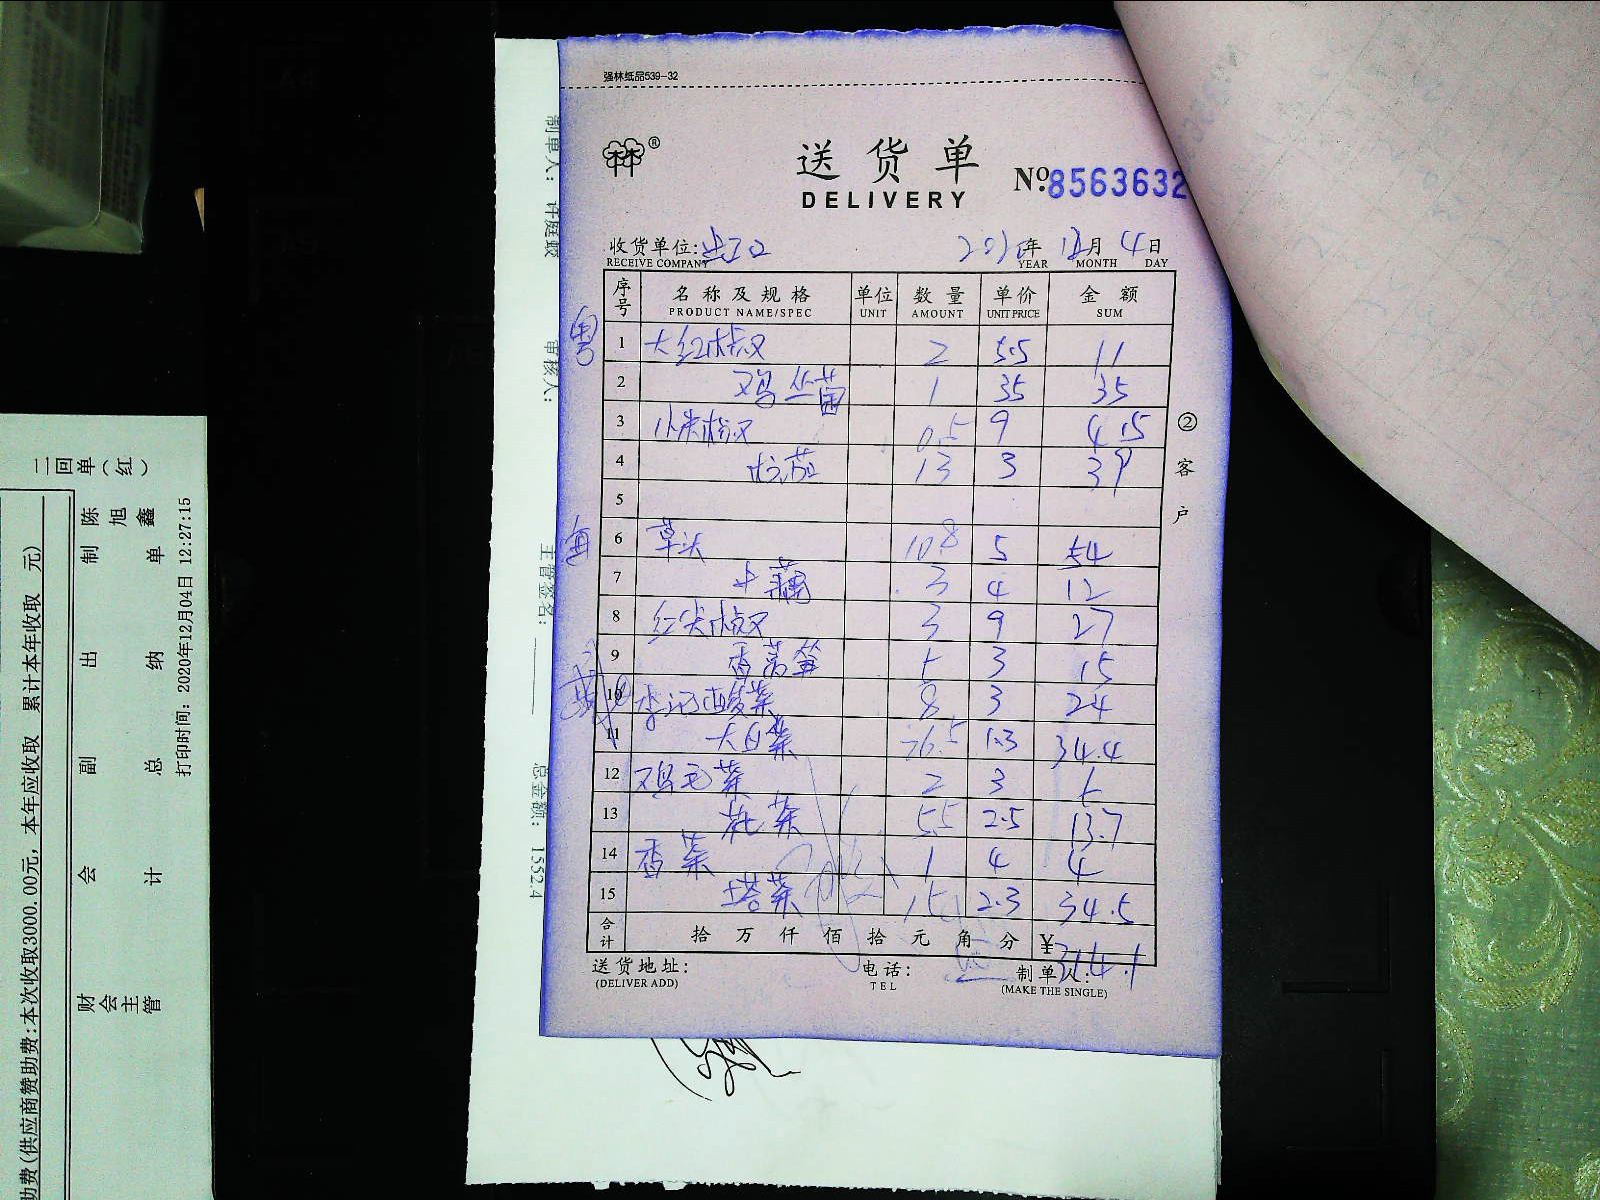 强林纸品539-32
®
送货单
DELIVERY
Nº:8563632
收货单位:
年 12月 4日
RECEIVE COMPANY YEAR MONTH DAY
序号 名称及规格 单位 数量 单价 金额
PRODUCT NAME/SPEC UNIT AMOUNT UNIT PRICE SUM
1 大红椒 2 5.5 11
2 鸡丛菌 1 35 35
3 小米椒 0.5 9 4.5
4 杭茄 13 3 39
5
6 草头 10.8 5 54
7 中藕 3 4 12
8 红尖椒 3 9 27
9 香莴笋 5 3 15
10 李记酸菜 8 3 24
11 大白菜 26.5 1.3 34.4
12 鸡毛菜 2 3
13 花菜 5.5 2.5 13.7
14 香菜 1 4 4
15 塔菜 15 2.3 34.5
合计 拾 万 仟 佰 拾 元 角 分 ¥314.1
送货地址: 电话: 制单人:
(DELIVER ADD) TEL (MAKE THE SINGLE)
②客户
制单人: 许庭蛟
审核人:
主管签名:
总金额: 1552.4
二回单(红)
助费(供应商赞助费:本次收取3000.00元, 本年应收取 累计本年收取 元)
财会主管 会计 副总 出纳 制单 陈旭鑫
打印时间: 2020年12月04日 12:27:15